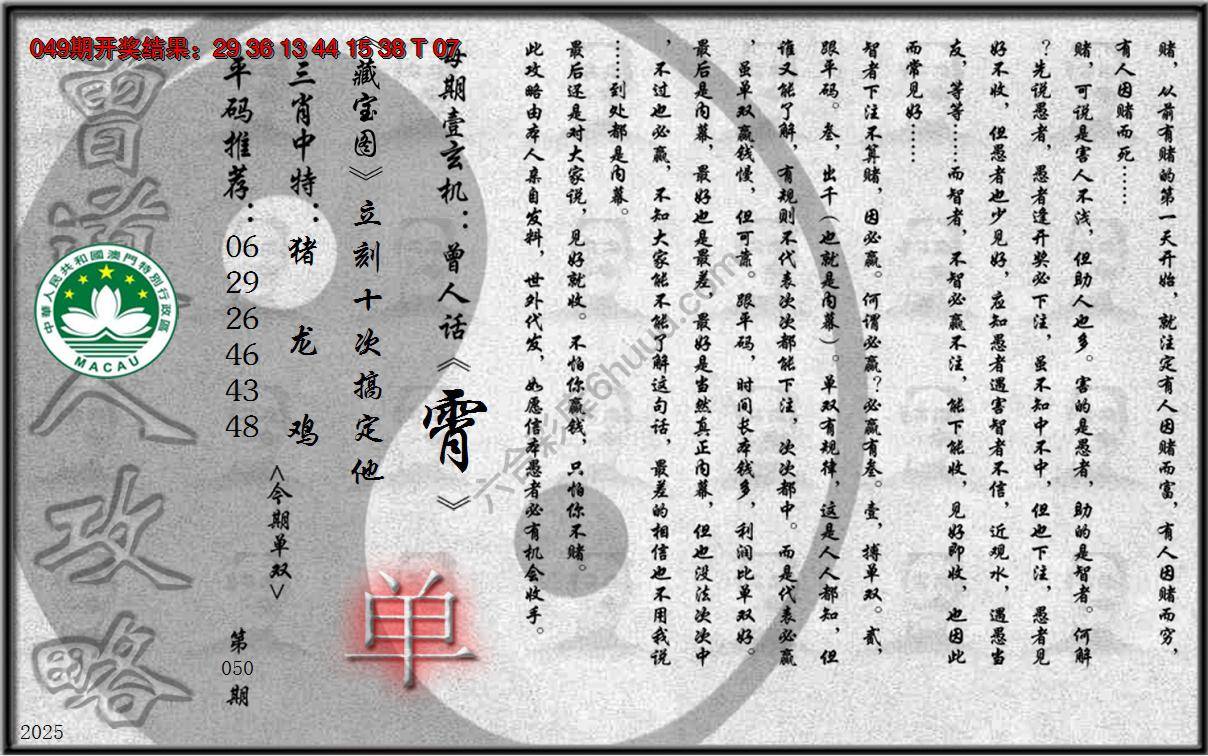 049期开奖结果：29 36 13 44 15 38 T 07
赌，从前有赌的第一天开始，就注定有人因赌而富，有人因赌而穷，
有人因赌而死……
赌，可说是害人不浅，但助人也多。害的是愚者，助的是智者。何解
？先说愚者，愚者逢开奖必下注，虽不知中不中，但也下注，愚者见
好不收，但愚者也少见好，应知愚者遇害智者不信，近观水，遇愚当
友，等等……而智者，不智必赢不注，能下能收，见好即收，也因此
而常见好……
智者下注不算赌，因必赢。何谓必赢？必赢有叁。壹，搏单双。贰，
跟平码。叁，出千（也就是内幕）。单双有规律，这是人人都知，但
谁又能了解，有规则不代表次次都能下注，次次都中。而是代表必赢
，虽单双赢钱慢，但可靠。跟平码，时间长本钱多，利润比单双好。
最后是内幕，最好也是最差，最好是当然真正内幕，但也没法次次中
，不过也必赢，不知大家能不能了解这句话，最差的相信也不用我说
……到处都是内幕。
最后还是对大家说，见好就收。不怕你赢钱，只怕你不赌。
此攻略由本人亲自发料，世外代发，如愿信本愚者必有机会收手。
每期壹玄机：曾人话《霄》
《藏宝图》立刻十次搞定他
单
三肖中特：猪 龙 鸡
<今期单双>
平码推荐：
06
29
26
46
43
48
第
050
期
曾道人攻略
中華人民共和國澳門特別行政區
MACAU
六合彩库6huuu.com
2025